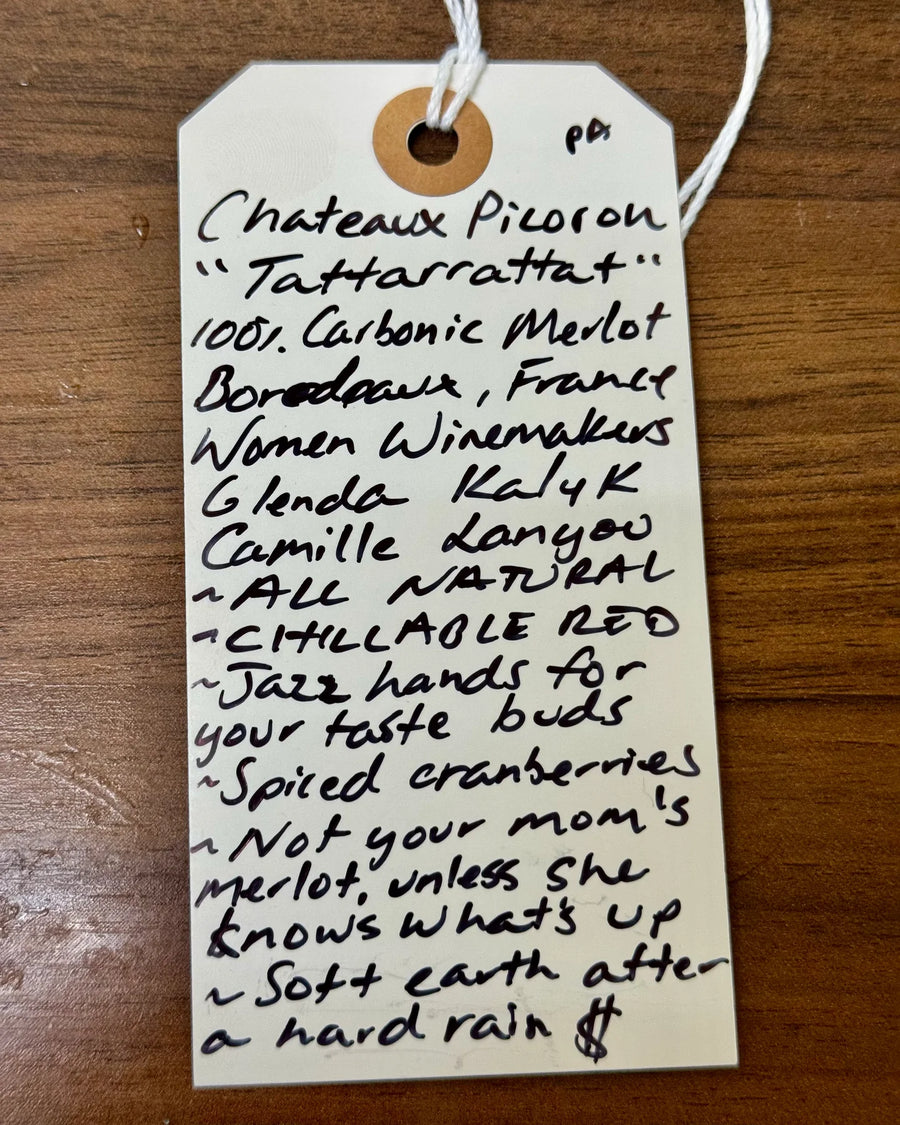 pA
Chateaux Picoron
"Tattarrattat"
100%. Carbonic Merlot
Boredeaux, France
Women Winemakers
Glenda Kalyk
Camille Lanyou
~ALL NATURAL
~CHILLABLE RED
~Jazz hands for
your taste buds
~Spiced cranberries
~Not your mom's
merlot, unless she
knows what's up
~Soft earth after
a hard rain $